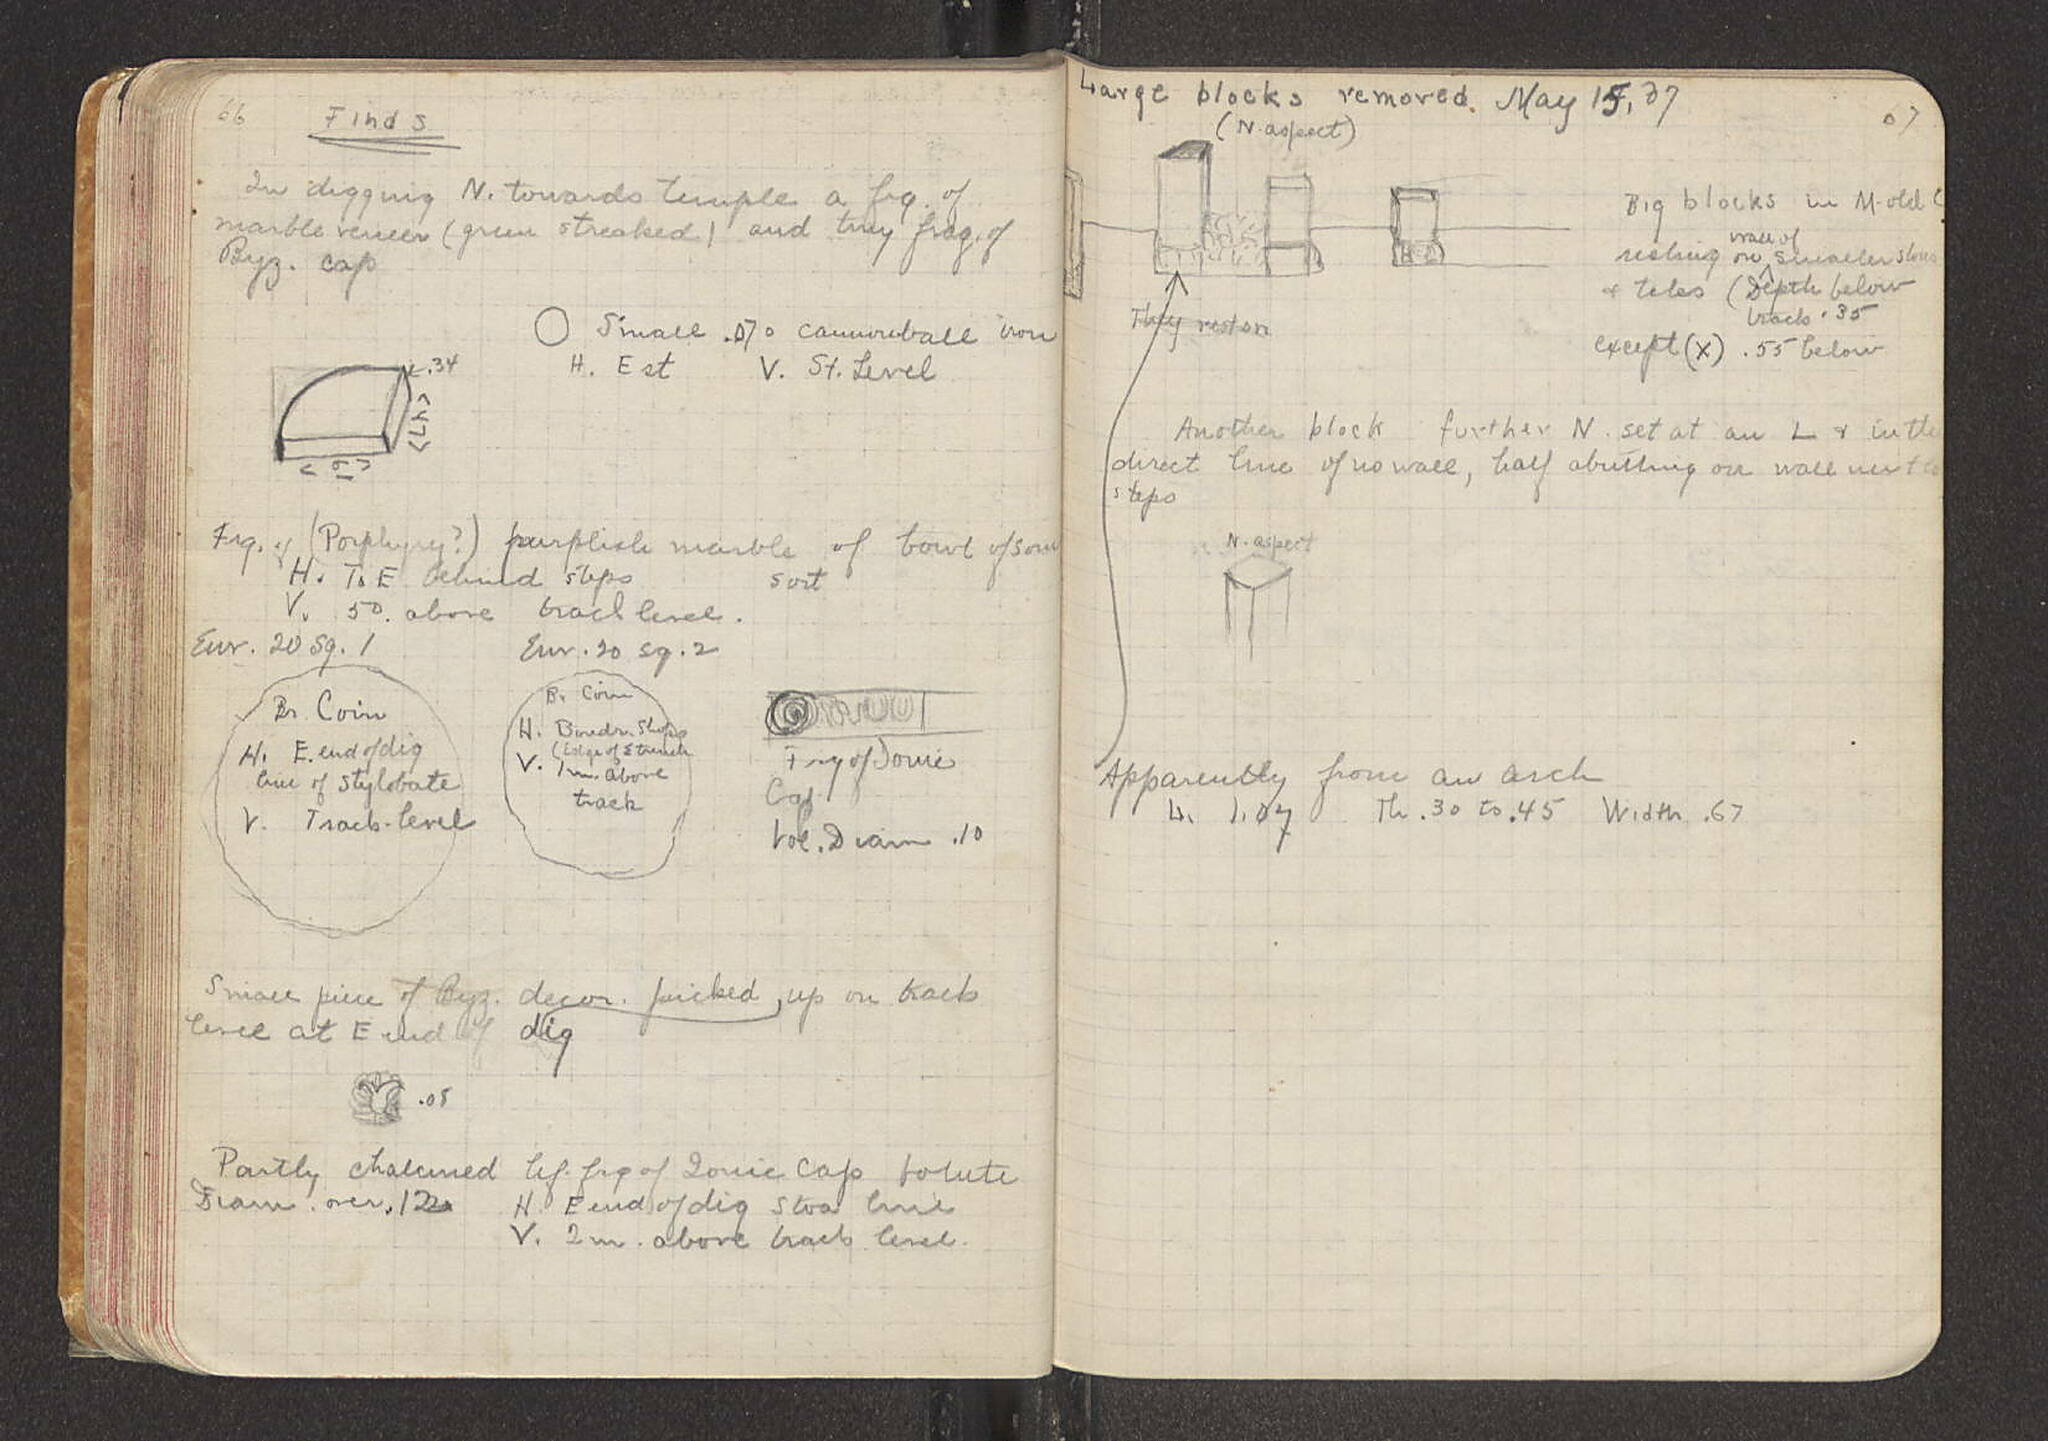 66
Finds
In digging N. towards temple a frg. of
marble veneer (green streaked) and tiny frag. of
Byz. cap
Small .070 cannonball iron
H. Est V. St. Level
.34
Frg. of (Porphyry?) purplish marble of bowl of some
sort
H. To E behind steps
V. 50. above track level.
Eur. 20 Sq. 1
Br. Coin
H. E. end of dig
line of Stylobate
V. Track-level
Eur. 20 sq. 2
Br. Coin
H. Boudr. Shops
(Edge of E trench
V. 1 m. above
track
Frg of Ionic
Cap.
Vol. Diam .10
Small piece of Byz. decor. picked up on track
level at E end of dig
.08
Partly chalcined lg. frg of Ionic Cap Volute
Diam. over .12
H. E end of dig Stoa line
V. 2 m. above track level.
Large blocks removed. May 15, 07
(N. aspect)
67
Big blocks in M-old
resting on wall of smaller stones
& tiles (Depth below
track .35
except (x) .55 below
They rest on
Another block further N. set at an L & in the
direct line of no wall, half abutting on wall next to
steps
N. aspect
Apparently from an arch
L. 1.07 Th .30 to .45 Width .67